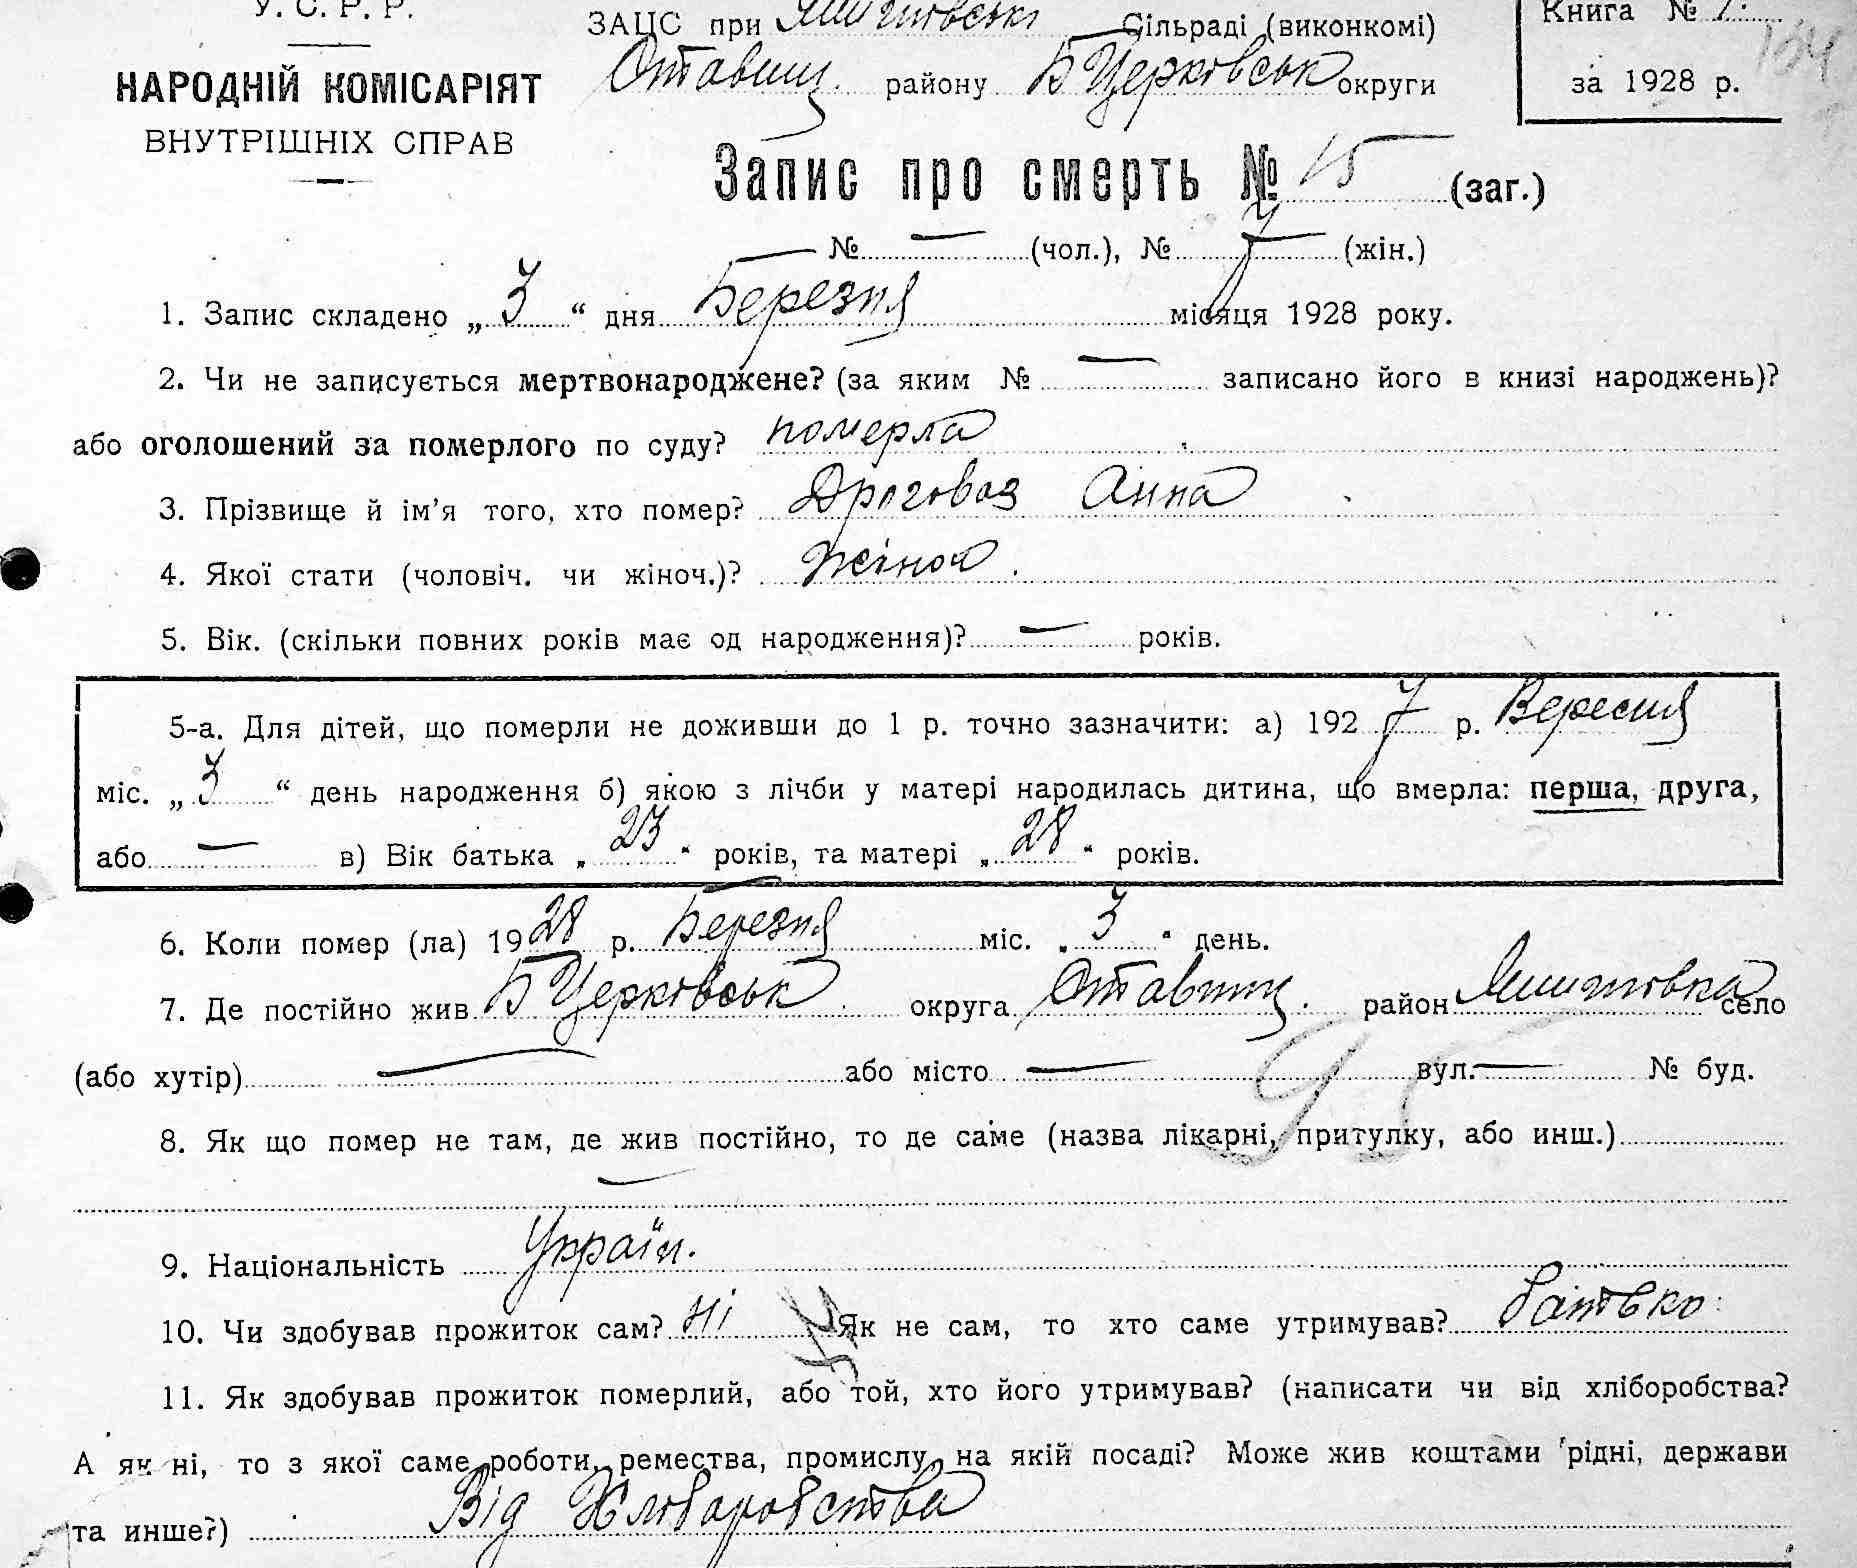 У. С. Р. Р.
НАРОДНІЙ КОМІСАРІЯТ
ВНУТРІШНІХ СПРАВ
ЗАЦС при Сільраді (виконкомі)
Ставищ. району Б Церковськ округи
Книга № 1.
за 1928 р.
134
Запис про смерть № 15 (заг.)
— № — (чол.), № 7 (жін.)
1. Запис складено „ 3 “ дня Березня місяця 1928 року.
2. Чи не записується мертвонароджене? (за яким № — записано його в книзі народжень)?
або оголошений за померлого по суду? померла
3. Прізвище й ім'я того, хто помер? Дроговоз Анна
4. Якої стати (чоловіч. чи жіноч.)? жіноч.
5. Вік. (скільки повних років має од народження)? — років.
5-а. Для дітей, що померли не доживши до 1 р. точно зазначити: а) 1927 р. Вересня
міс. „ 3 “ день народження б) якою з лічби у матері народилась дитина, що вмерла: перша, друга,
або — в) Вік батька „ 23 “ років, та матері „ 28 “ років.
6. Коли помер (ла) 1928 р. Березня міс. „ 3 “ день.
7. Де постійно жив Б Церковськ округа Ставищ. район село
(або хутір) — або місто — вул. — № буд.
8. Як що помер не там, де жив постійно, то де саме (назва лікарні, притулку, або инш.)
—
9. Національність Україн.
10. Чи здобував прожиток сам? Ні Як не сам, то хто саме утримував? батько
11. Як здобував прожиток померлий, або той, хто його утримував? (написати чи від хліборобства?
А як ні, то з якої саме роботи, ремества, промислу, на якій посаді? Може жив коштами рідні, держави
та инше?) Від Хліборобства